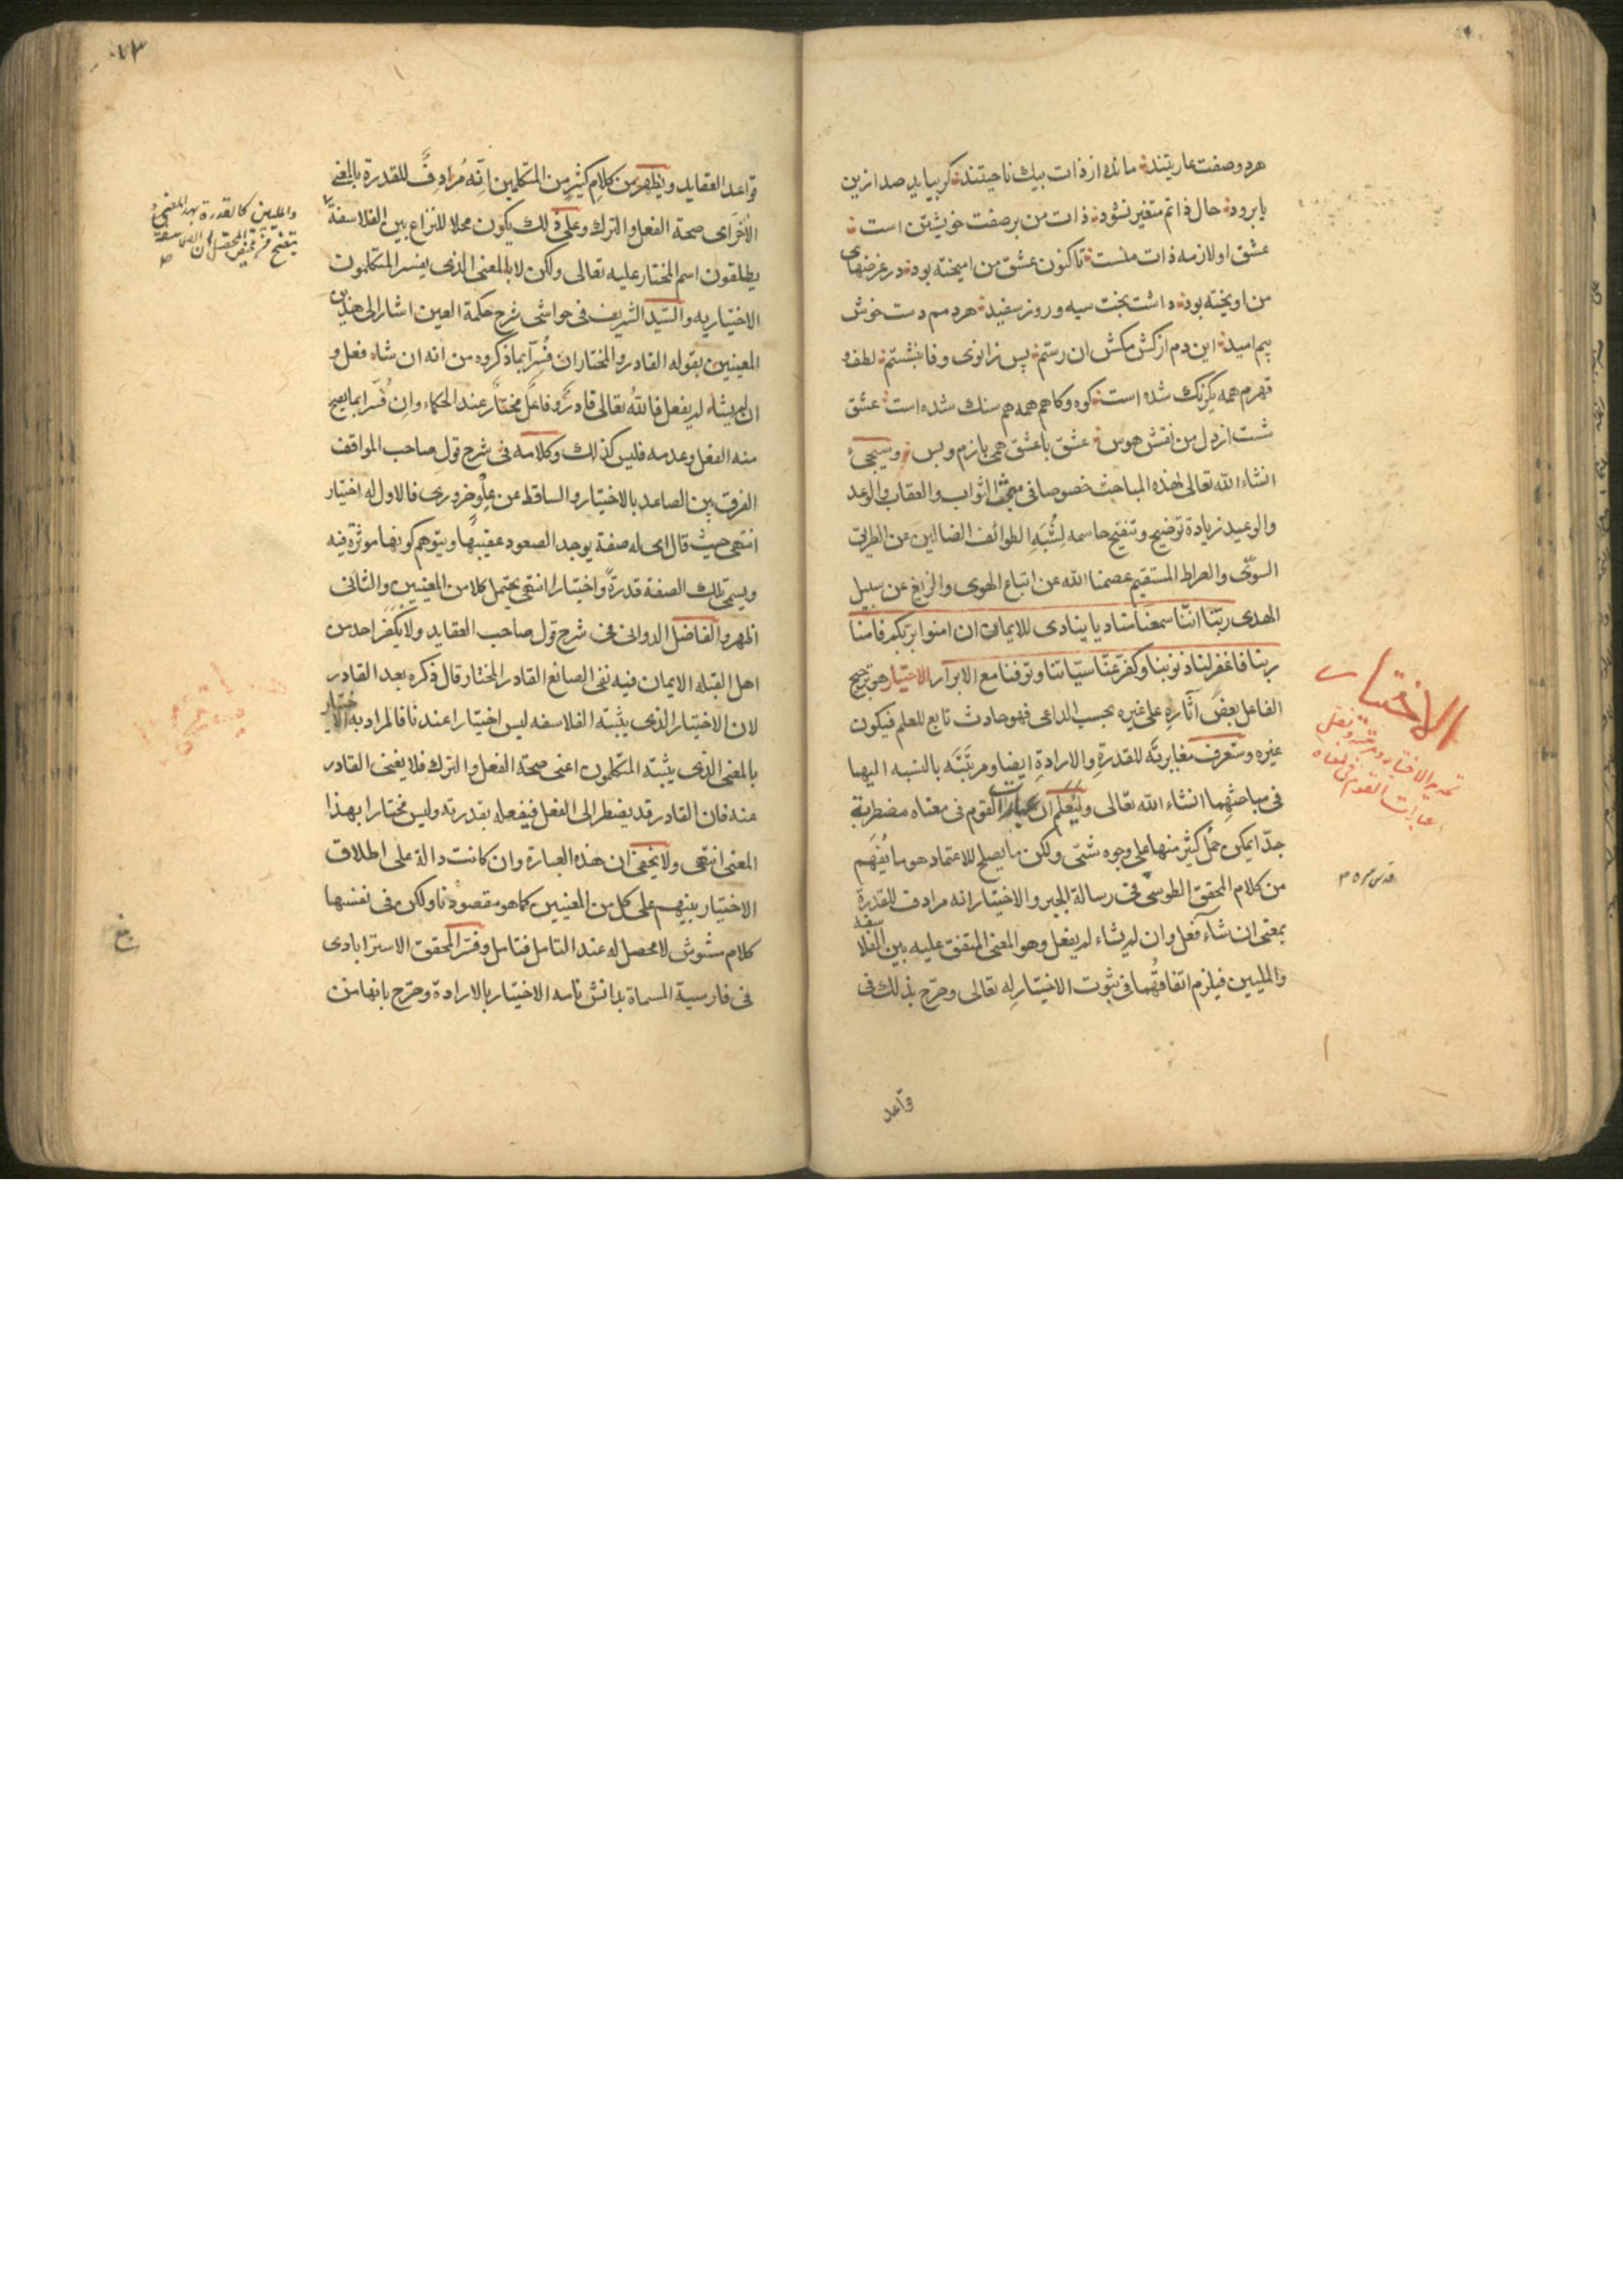 هردو صفت عاریتند مانده از ذات بیک ناحیتند کر بیاید صد ازین
یا برود حال ذاتم متغیر نشود ذات من بر صفت خویشتن است
عشق او لازمه ذات منست تاکنون عشق من امیخته بود در غرضهای
من اویخته بود داشت بخت سیه و روز سفید هردمم دست خوش
بیم امید این دم از کش مکش ان رستم پس زانوی وفا بنشستم لطف و
قهرم همه یکرنک شده است کوه و کاهم همه هم سنک شده است عشق
شست از دل من نقش هوس عشق با عشق همی بازم و بس وسیجیء
انشاء الله تعالی لهذه المباحث خصوصا فی مبحثی الثواب والعقاب والوعد
والوعید زیادة توضیح وتنقیح حاسمه لشبه الطوائف الضالین عن الطریق
السوی والصراط المستقیم عصمنا الله عن اتباع الهوی والزیغ عن سبیل
الهدی ربنا اننا سمعنا منادیا ینادی للایمان ان امنوا بربکم فامنا
ربنا فاغفر لنا ذنوبنا وکفر عنا سیاتنا وتوفنا مع الابرار الاختیار هو ترجیح
الفاعل بعض آثاره علی غیره بحسب الداعی فهو حادث تابع للعلم فیکون
غیره وستعرف مغایرته للقدرة والارادة ایضا ومرتبته بالنسبه الیهما
فی مباحثهما انشاء الله تعالی ولیعلم ان عبارات القوم فی معناه مضطربة
جدا یمکن حمل کثیر منها علی وجوه شتی ولکن ما یصلح للاعتماد هو ما یفهم
من کلام المحقق الطوسی فی رسالة الجبر والاختیار انه مرادف للقدرة
بمعنی ان شاء فعل وان لم یشاء لم یفعل وهو المعنی المتفق علیه بین الفلاسفه
والملیین فیلزم اتفاقهما فی ثبوت الاختیار له تعالی وصرح بذلک فی
قواعد
الاختیار
تحریر الاختیار
عبارات القوم فی معناه
قواعد العقاید ویظهر من کلام کثیر من المتکلمین انه مرادف للقدرة بالمعنی
الاخر ای صحة الفعل والترک وعلی ذلک یکون محلا للنزاع بین الفلاسفة
والملیین کالقدرة بهذا المعنی
یطلقون اسم المختار علیه تعالی ولکن لا بالمعنی الذی یفسر المتکلمون
الاختیار به والسید الشریف فی حواشی شرح حکمة العین اشار الی هذین
المعنیین بقوله القادر والمختار ان فسرا بما ذکروه من انه ان شاء فعل و
ان لم یشاء لم یفعل فالله تعالی قادر وفاعل مختار عند الحکماء وان فسرا بما یصح
منه الفعل وعدمه فلیس کذلک وکلامه فی شرح قول صاحب المواقف
الفرق بین الصاعد بالاختیار والساقط عن علو ضروری فالاول له اختیار
انتهی حیث قال ای له صفة یوجد الصعود عقیبها ویتوهم کونها موثرة فیه
ویسمی تلک الصفة قدرة واختیارا انتهی یحتمل کلا من المعنیین والثانی
اظهر والفاضل الدوانی فی شرح قول صاحب العقاید ولا یکفر احد من
اهل القبله الا بما فیه نفی الصانع القادر المختار قال ذکره بعد القادر
لان الاختیار الذی یثبته الفلاسفه لیس اختیارا عندنا فالمراد به الاختیار
بالمعنی الذی یثبته المتکلمون اعنی صحة الفعل والترک فلا یغنی القادر
عنه فان القادر قد یضطر الی الفعل فیفعله بقدرته ولیس مختارا بهذا
المعنی انتهی ولا یخفی ان هذه العبارة وان کانت دالة علی اطلاق
الاختیار بینهم علی کل من المعنیین کما هو مقصودنا ولکن فی نفسها
کلام مشوش لا محصل له عند التامل فتامل وفسر المحقق الاسترابادی
فی فارسیة المسماة بدانش نامه الاختیار بالارادة وصرح بانها من